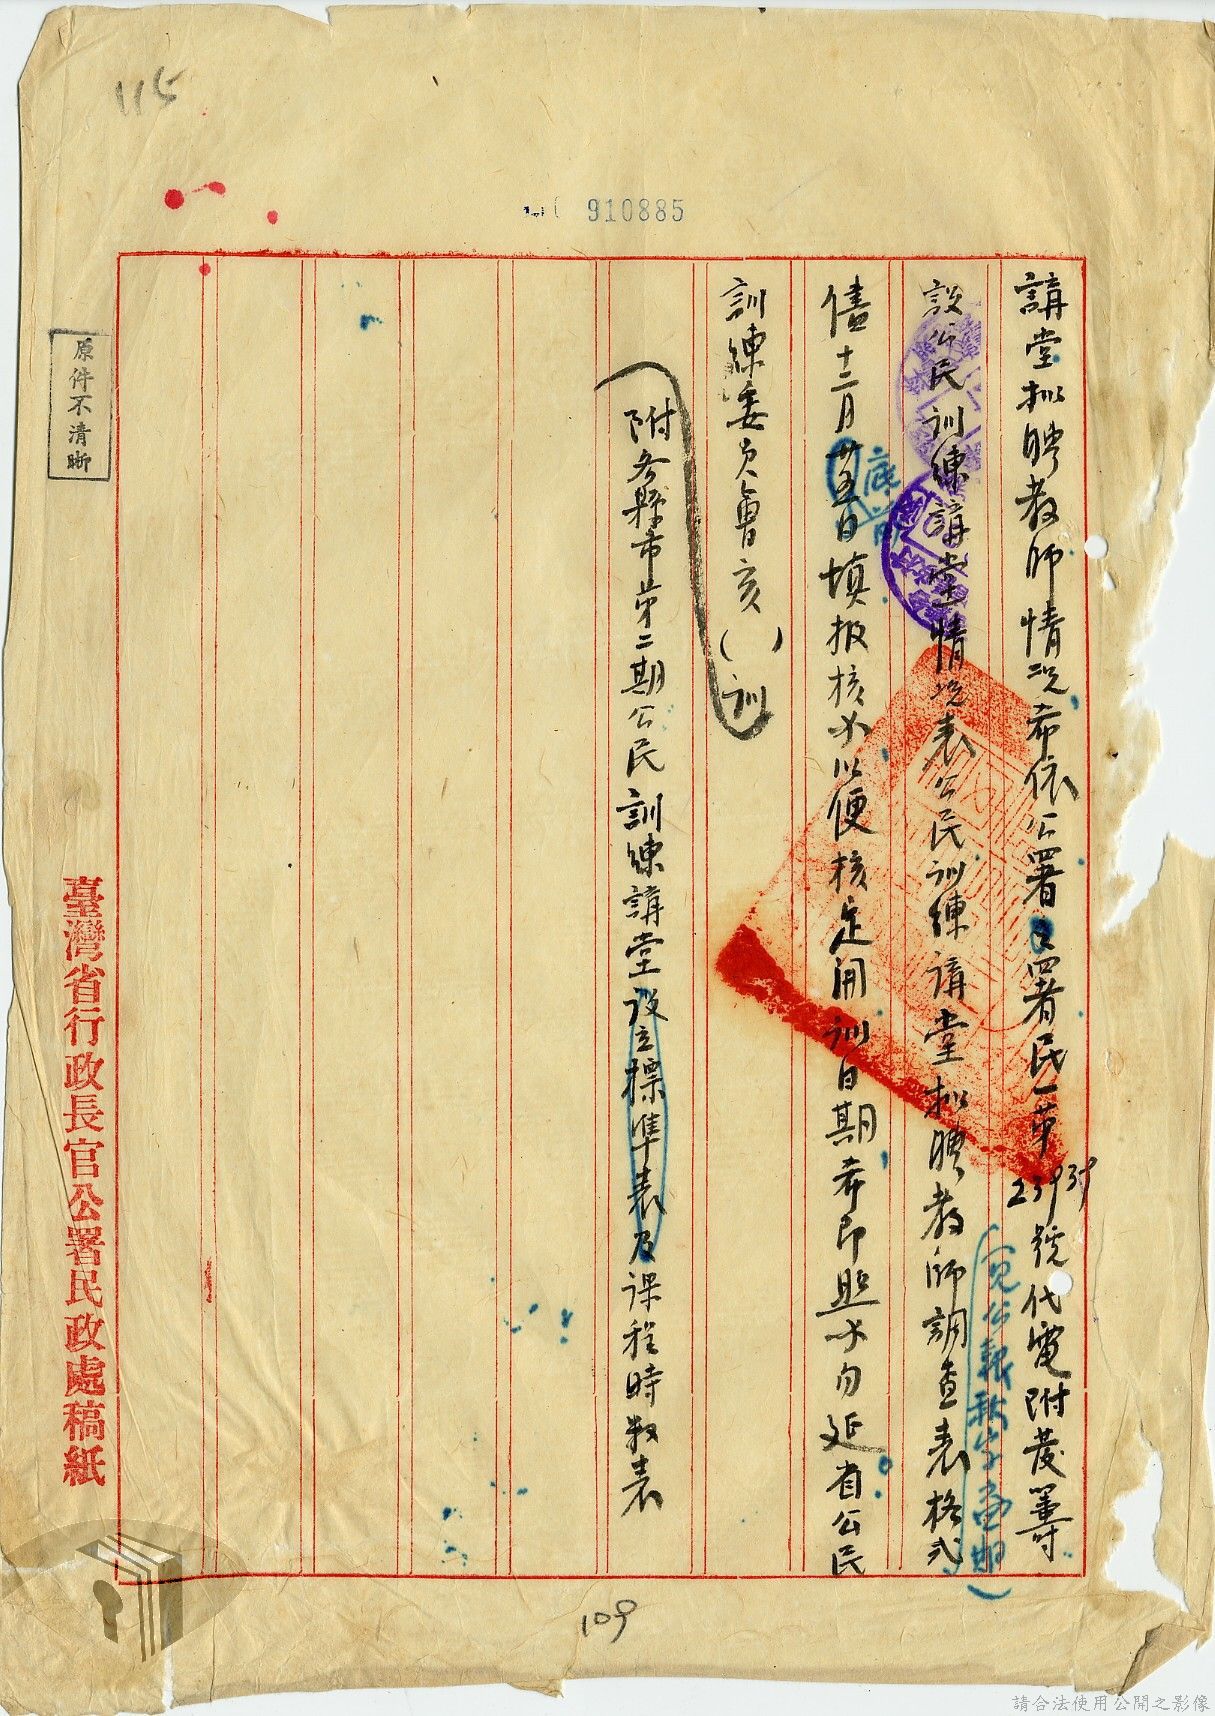 115
910885
講堂擬聘教師情況希依公署署民一第23939號代電附發籌
(見公報秋字 期)
設公民訓練講堂情況表公民訓練講堂擬聘教師調查表格式
儘十二月廿五日填報核办以便核定開訓日期希即照办勿延省公民
底前
訓練委員會亥( )訓
附各縣市第二期公民訓練講堂設立標準表及課程時数表
原件不清晰
臺灣省行政長官公署民政處稿紙
109
請合法使用公開之影像